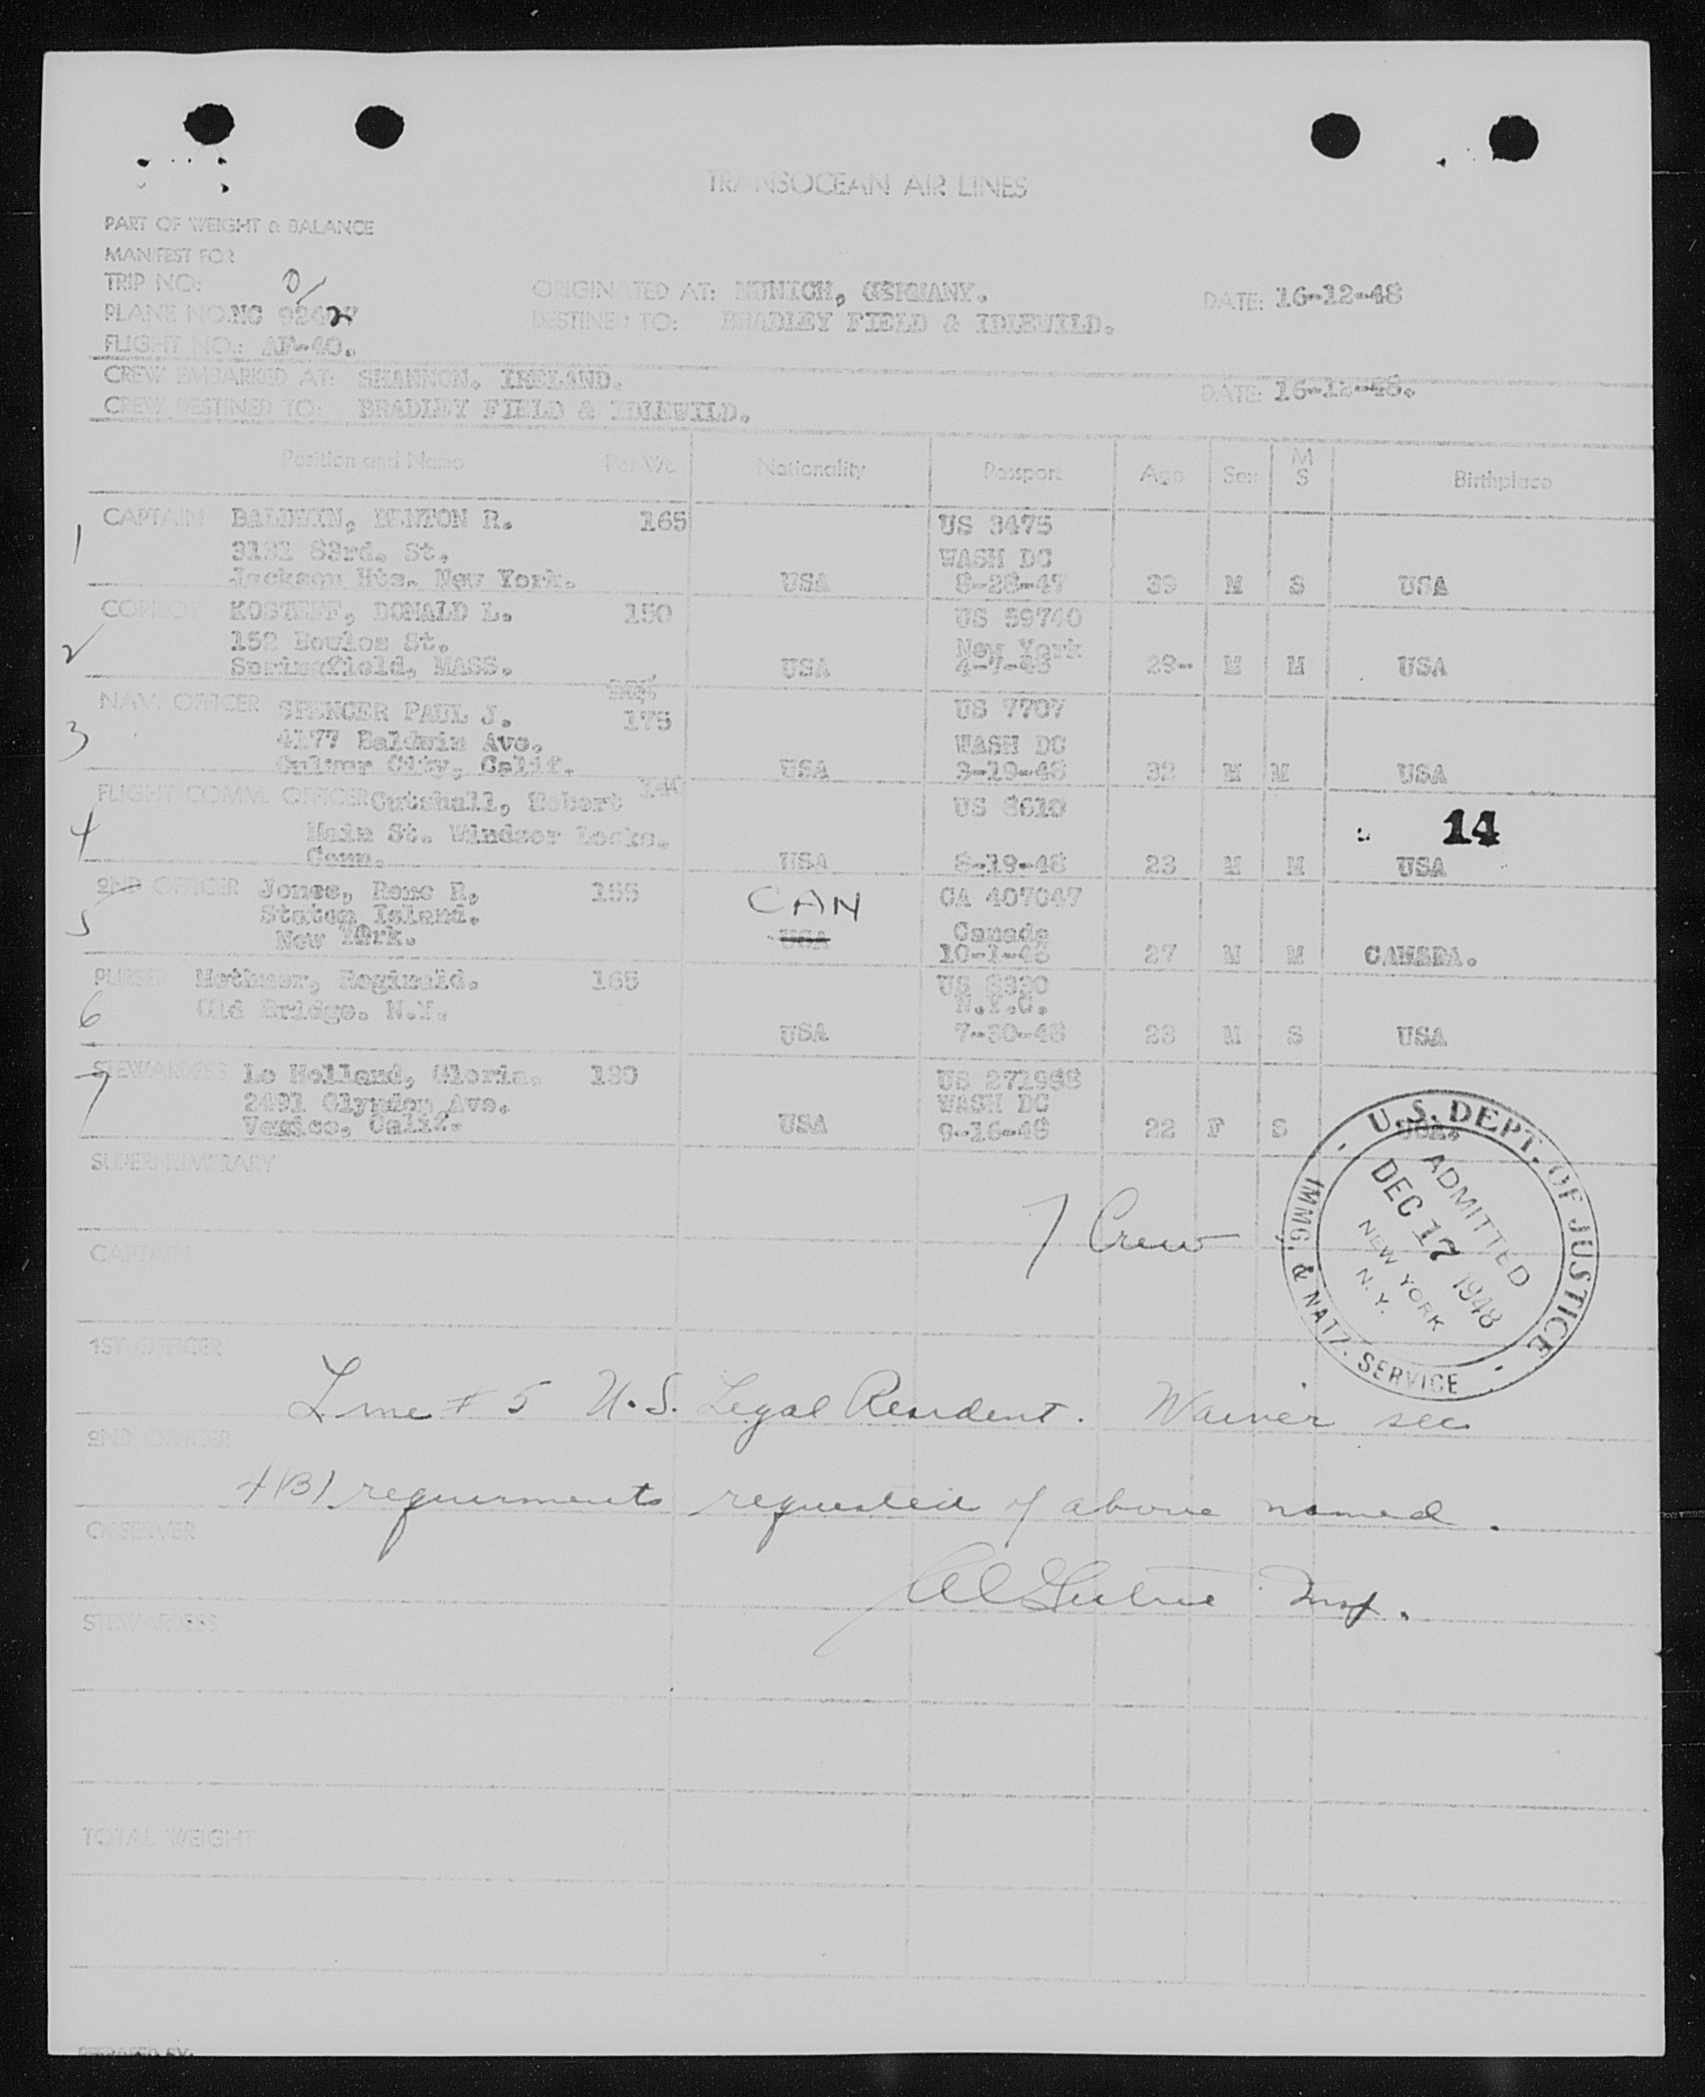 TRANSOCEAN AIR LINES
PART OF WEIGHT & BALANCE
MANIFEST FOR
TRIP NO:
PLANE NO. NC
ORIGINATED AT: MUNICH, GERMANY.
DATE: 16-12-48
DESTINED TO: BRADLEY FIELD & IDLEWILD.
FLIGHT NO.: AF-40.
CREW EMBARKED AT: SHANNON. IRELAND.
DATE: 16-12-48.
CREW DESTINED TO: BRADLEY FIELD & IDLEWILD.
Position and Name Per Wt. Nationality Passport Age Sex M S Birthplace
1 CAPTAIN BALDWIN, R. 165 US 3475
3131 83rd. St. WASH DC
Jackson Hts. New York. USA 8-28-47 39 M S USA
2 COPILOT DONALD L. 150 US 59740
152 St. New York
Springfield, MASS. USA 29- M M USA
3 NAV. OFFICER SPENCER PAUL J. 175 US 7707
4177 Baldwin Ave. WASH DC
Culver City, Calif. USA 3-19-48 32 M M USA
4 FLIGHT COMM. OFFICER Cutshall, Robert US 8610
Main St. Windsor Locks. 14
Conn. USA 8-19-48 23 M M USA
5 2ND OFFICER Jones, Rene R, 155 CAN CA 407047
Staten Island. Canada
New York. USA 10-1-48 27 M M CANADA.
6 PURSER Reginald. 165 US
Old Bridge. N.Y.C.
USA 7-30-48 23 M S USA
7 STEWARDESS Le Holland, Gloria. 130 US
2491 Ave. WASH DC
Calif. USA 9-16-48 22 F S USA.
SUPERNUMERARY
7 Crew
U.S. DEPT. OF JUSTICE
IMMG. & NATZ. SERVICE
ADMITTED
DEC 17 1948
NEW YORK
N.Y.
CAPTAIN
1ST OFFICER
Line # 5 U.S. Legal Resident. Waiver sec
2ND OFFICER
4(B) requirments requested of above named.
OBSERVER
Insp.
STEWARDESS
TOTAL WEIGHT
PREPARED BY: